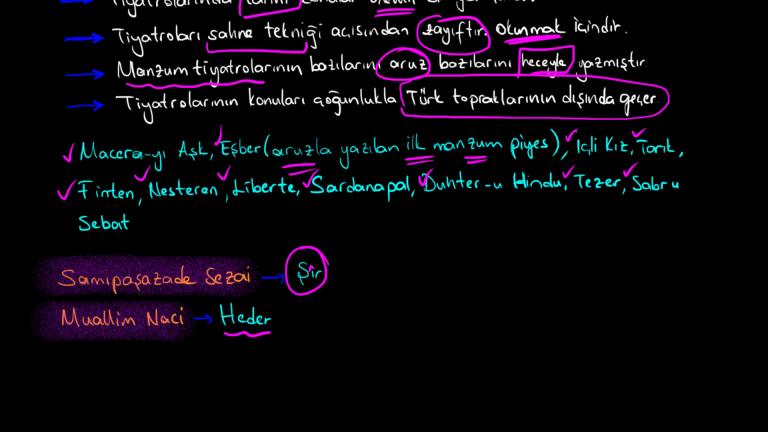 Tiyatroları sahne tekniği açısından zayıftır. Okunmak içindir.
Manzum tiyatrolarının bazılarını aruz bazılarını heceyle yazmıştır.
Tiyatrolarının konuları çoğunlukla Türk topraklarının dışında geçer
Macera-yı Aşk, Eşber (aruzla yazılan ilk manzum piyes), İçli Kız, Tarık,
Finten, Nesteren, Liberte, Sardanapal, Duhter-u Hindu, Tezer, Sabru
Sebat
Samipaşazade Sezai → Şir
Muallim Naci → Heder